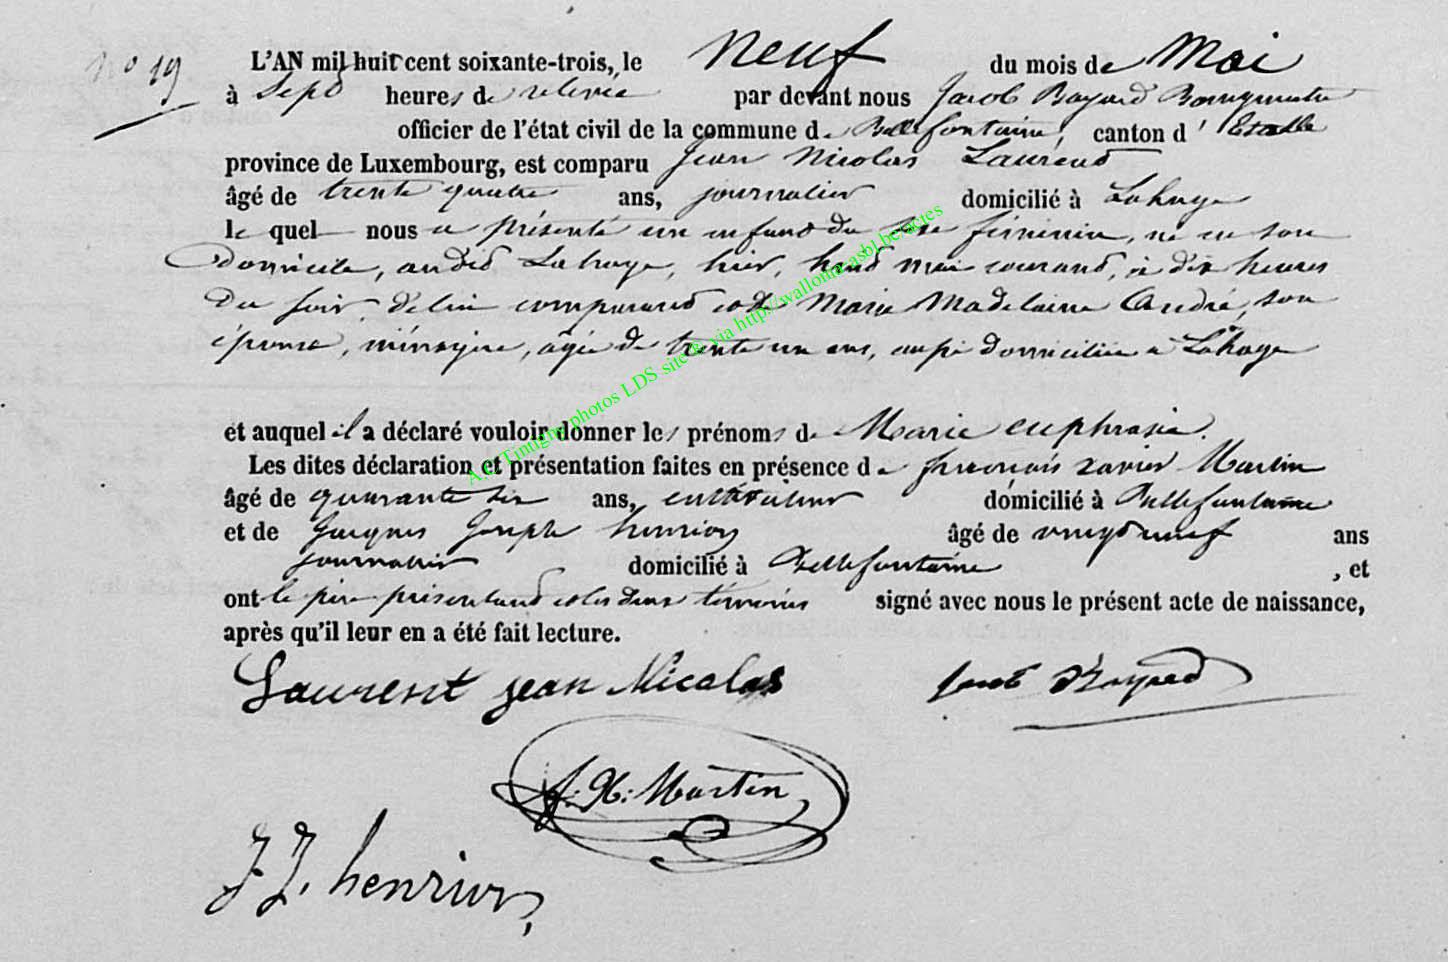 No 19
L'AN mil huit cent soixante-trois, le neuf du mois de Mai
à Sept heures de relevée par devant nous Jacob Bayard Bourgmestre
officier de l'état civil de la commune de Bellefontaine, canton d'Etalle
province de Luxembourg, est comparu Jean Nicolas Laurend
âgé de trente quatre ans, journalier domicilié à Lahage
le quel nous a présenté un enfand du sexe féminin, né en son
Domicile, audid Lahage, hier, huid mai courand, à dix heures
Du soir, de lui comparand et de Marie Madelaine André, son
épouse, ménagère, agée de trente un ans, aussi domiciliée à Lahage
et auquel il a déclaré vouloir donner les prénoms de Marie euphrasie.
Les dites déclaration et présentation faites en présence de francois xavier Martin
âgé de quarante six ans, cultivateur domicilié à Bellefontaine
et de Jacques Joseph henrion âgé de vingd neuf ans
journalier domicilié à Bellefontaine , et
ont le père présentand et les deux témoins signé avec nous le présent acte de naissance,
après qu'il leur en a été fait lecture.
Laurent jean Nicolas Jacob Bayard
f: X: Martin
J J. henrion,
A.E. Tintigny photos LDS site & via http://wallonicasbl.be/actes